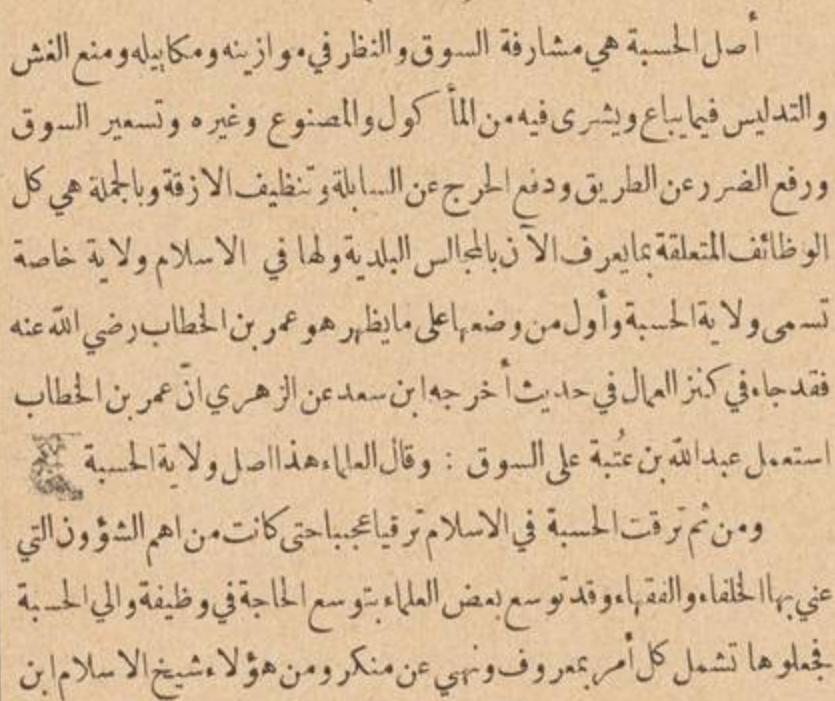 أصل الحسبة هي مشارفة السوق والنظر في موازينه ومكاييله ومنع الغش
والتدليس فيما يباع ويشرى فيه من المأكول والمصنوع وغيره وتسعير السوق
ورفع الضرر عن الطريق ودفع الحرج عن السابلة وتنظيف الازقة وبالجملة هي كل
الوظائف المتعلقة بما يعرف الآن بالمجالس البلدية ولها في الاسلام ولاية خاصة
تسمى ولاية الحسبة وأول من وضعها على ما يظهر هو عمر بن الخطاب رضي الله عنه
فقد جاء في كنز العمال في حديث أخرجه ابن سعد عن الزهري انّ عمر بن الخطاب
استعمل عبد الله بن عُتبة على السوق : وقال العلماء هذا اصل ولاية الحسبة
ومن ثم ترقت الحسبة في الاسلام ترقيا عجيبا حتى كانت من اهم الشؤون التي
عني بها الخلفاء والفقهاء وقد توسع بعض العلماء بتوسع الحاجة في وظيفة والي الحسبة
فجعلوها تشمل كل أمر بمعروف ونهي عن منكر ومن هؤلاء شيخ الاسلام ابن